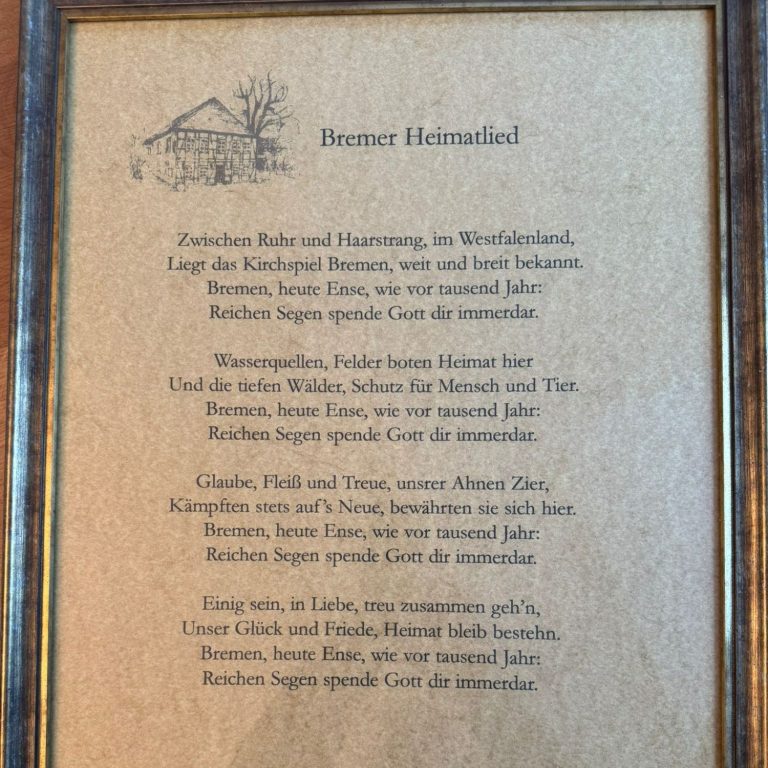 Bremer Heimatlied
Zwischen Ruhr und Haarstrang, im Westfalenland,
Liegt das Kirchspiel Bremen, weit und breit bekannt.
Bremen, heute Ense, wie vor tausend Jahr:
Reichen Segen spende Gott dir immerdar.
Wasserquellen, Felder boten Heimat hier
Und die tiefen Wälder, Schutz für Mensch und Tier.
Bremen, heute Ense, wie vor tausend Jahr:
Reichen Segen spende Gott dir immerdar.
Glaube, Fleiß und Treue, unsrer Ahnen Zier,
Kämpften stets auf's Neue, bewährten sie sich hier.
Bremen, heute Ense, wie vor tausend Jahr:
Reichen Segen spende Gott dir immerdar.
Einig sein, in Liebe, treu zusammen geh'n,
Unser Glück und Friede, Heimat bleib bestehn.
Bremen, heute Ense, wie vor tausend Jahr:
Reichen Segen spende Gott dir immerdar.